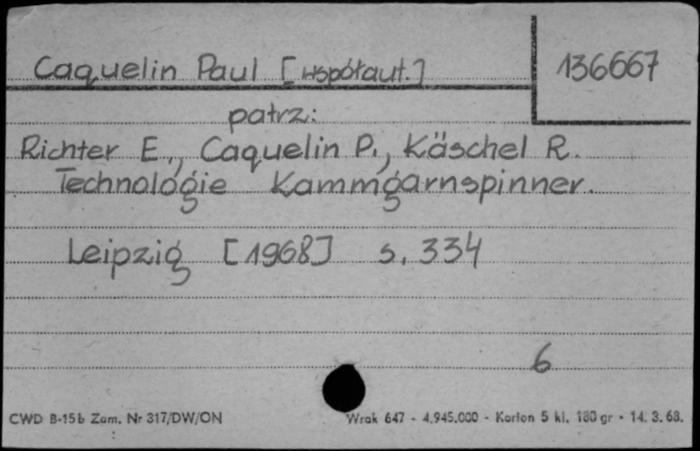 Caquelin Paul [współaut.] 136667
patrz:
Richter E., Caquelin P., Käschel R.
Technologie Kammgarnspinner.
Leipzig [1968] s. 334
6
CWD B-15b Zam. Nr 317/DW/ON Wrak 647 - 4.945.000 - Karton 5 kl. 180 gr - 14. 3. 68.